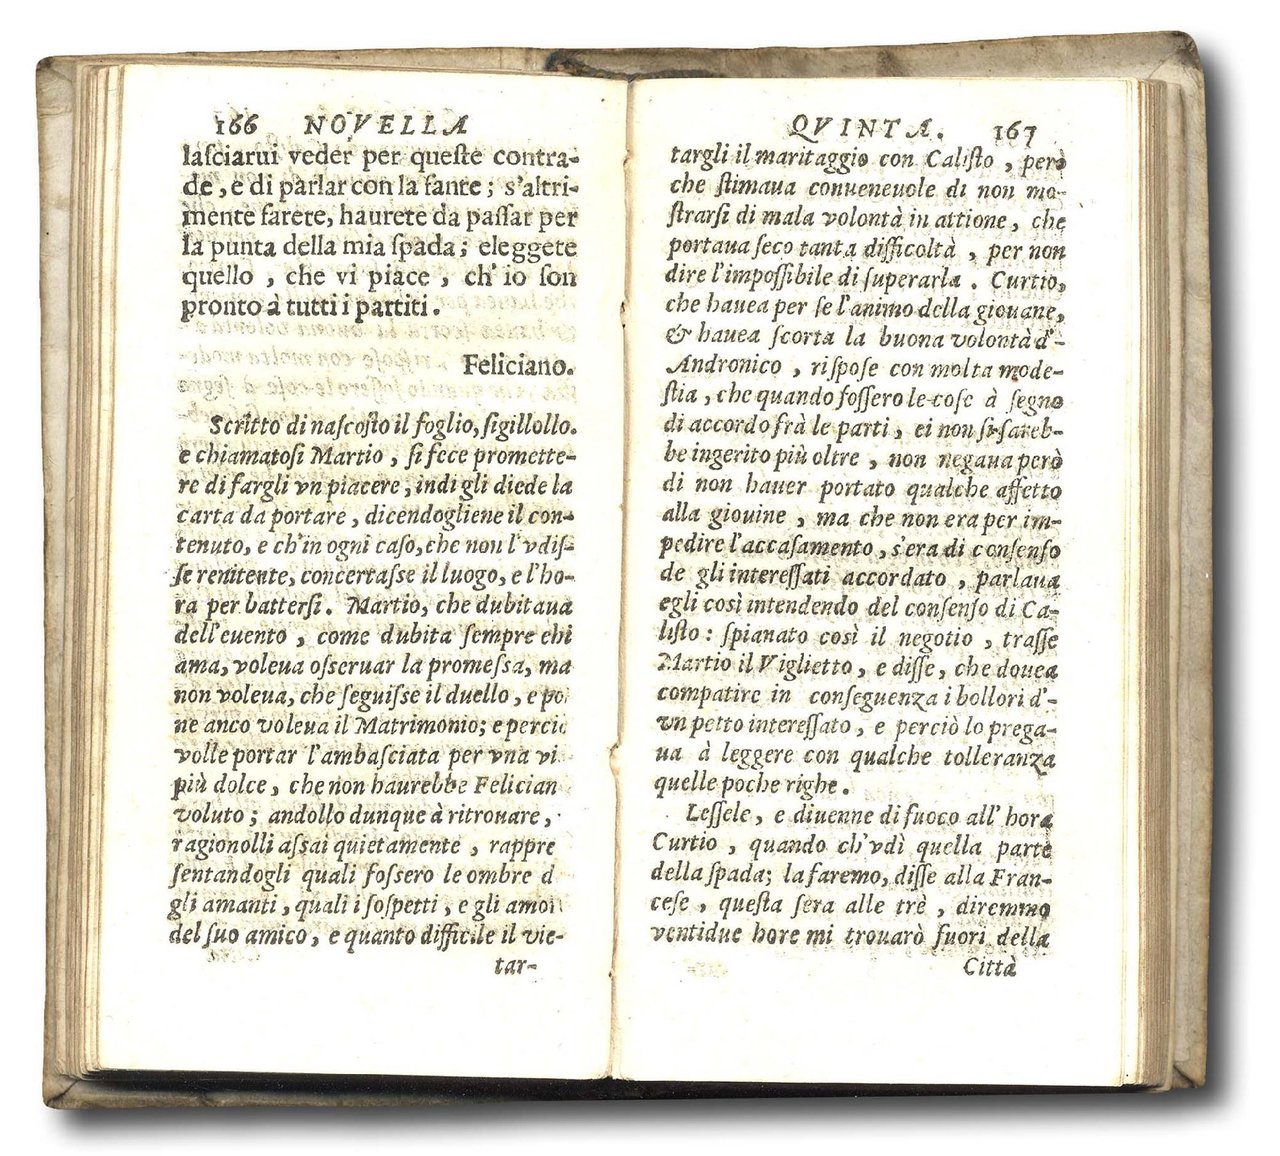 166 NOVELLA
laſciarui veder per queſte contra-
de, e di parlar con la fante; s'altri-
mente farete, haurete da paſſar per
la punta della mia ſpada; eleggete
quello, che vi piace, ch'io ſon
pronto à tutti i partiti.
Feliciano.
Scritto di naſcoſto il foglio, ſigillollo.
e chiamatoſi Martio, ſi fece promette-
re di fargli vn piacere, indi gli diede la
carta da portare, dicendogliene il con-
tenuto, e ch'in ogni caſo, che non l'vdiſ-
ſe renitente, concertaſse il luogo, e l'ho-
ra per batterſi. Martio, che dubitaua
dell'euento, come dubita ſempre chi
ama, voleua oſseruar la promeſsa, ma
non voleua, che ſeguiſse il duello, e po
ne anco voleua il Matrimonio; e perciò
volle portar l'ambaſciata per vna vi
più dolce, che non haurebbe Felician
voluto; andollo dunque à ritrouare,
ragionolli aſsai quietamente, rappre
ſentandogli quali foſsero le ombre d
gli amanti, quali i ſoſpetti, e gli amori
del ſuo amico, e quanto difficile il vie-
tar-
QVINTA. 167
targli il maritaggio con Caliſto, però
che ſtimaua conueneuole di non mo-
ſtrarſi di mala volontà in attione, che
portaua ſeco tanta difficoltà, per non
dire l'impoſſibile di ſuperarla. Curtio,
che hauea per ſe l'animo della giouane,
& hauea ſcorta la buona volontà d'-
Andronico, riſpoſe con molta mode-
ſtia, che quando foſſero le coſe à ſegno
di accordo frà le parti, ei non ſi ſareb-
be ingerito più oltre, non negaua però
di non hauer portato qualche affetto
alla giouine, ma che non era per im-
pedire l'accaſamento, s'era di conſenſo
de gli intereſſati accordato, parlaua
egli così intendendo del conſenſo di Ca-
liſto: ſpianato così il negotio, traſſe
Martio il Viglietto, e diſſe, che douea
compatire in conſeguenza i bollori d'-
vn petto intereſſato, e perciò lo prega-
ua à leggere con qualche tolleranza
quelle poche righe.
Leſſele, e diuenne di fuoco all'hora
Curtio, quando ch'vdì quella parte
della ſpada; la faremo, diſſe alla Fran-
ceſe, queſta ſera alle trè, diremmo
ventidue hore mi trouarò fuori della
Città